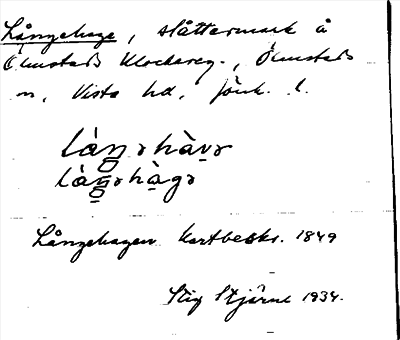 Långehage, slåttermark å
Ölmstads Klockareg., Ölmstads
sn, Vista hd, Jönk. l.
làŋ̲ɘhàv̲ɘ
làŋ̲ɘhàgɘ
Långehagen Kartbeskr. 1849
Stig Stjärne 1934.